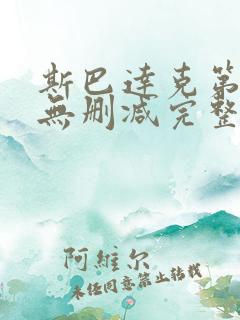 斯巴达克第
無删减完整
阿維尔
未经同意禁止转载